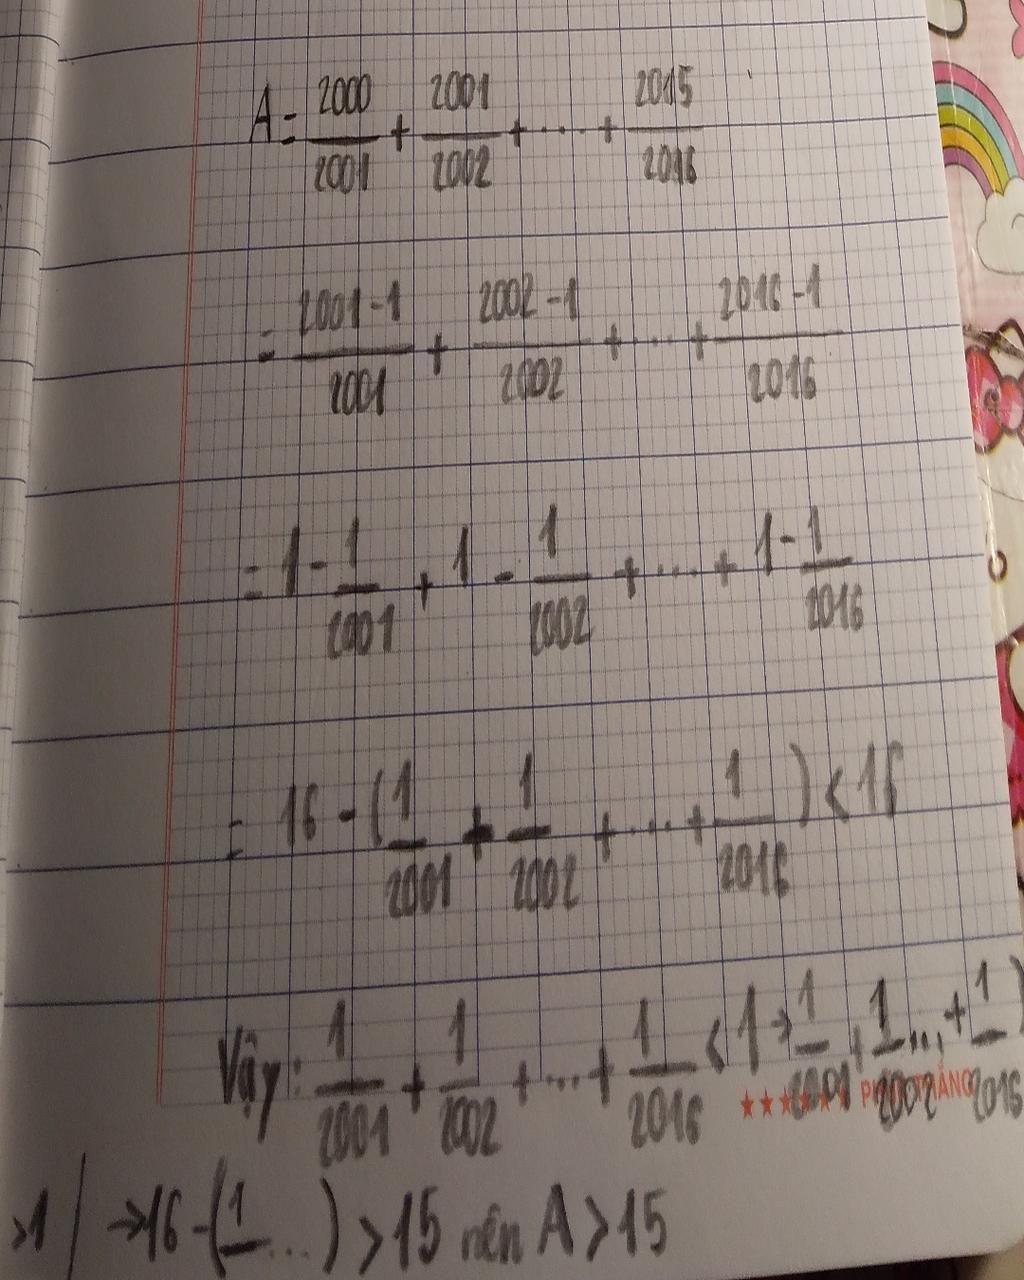 A = 2000/2001 + 2001/2002 + .... + 2015/2016
= 2001-1/2001 + 2002-1/2002 + ... + 2016-1/2016
= 1 - 1/2001 + 1 - 1/2002 + ... + 1 - 1/2016
= 16 - (1/2001 + 1/2002 + ... + 1/2016) < 16
Vậy: 1/2001 + 1/2002 + ... + 1/2016 < 1 → 1/2001 + 1/2002 ... + 1/2016)
>1 / → 16 - (1/ ...) > 15 nên A > 15